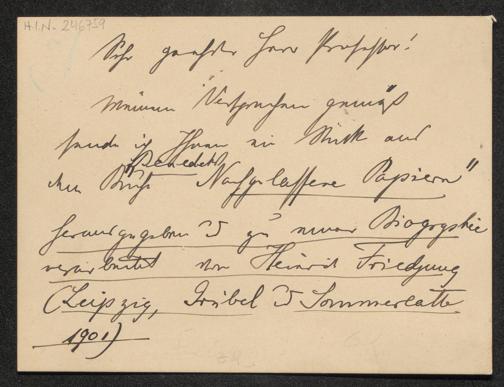 H.I.N. 246759
Sehr geehrter Herr Professor!
Meinem Versprechen gemäß
sende ich Ihnen ein Stück aus
Benedeks
dem Buche "Nachgelassene Papiere"
herausgegeben u zu einer Biographie
verarbeitet von Heinrich Friedjung
(Leipzig, Grübel u Sommerlatte
1901)